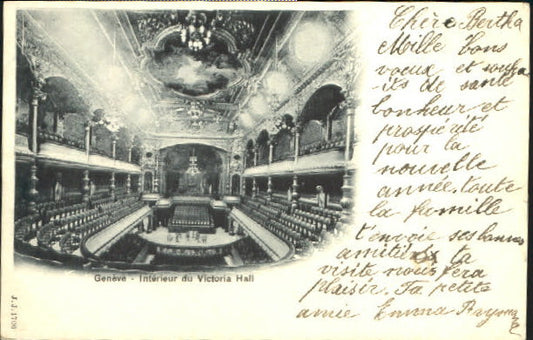 Chère Bertha
Mille bons
voeux et souha
its de santé
bonheur et
prospérité
pour la
nouvelle
année. toute
la famille
t'envoie ses bonnes
amitiés la
visite nous fera
plaisir. Ta petite
amie Emma
Genève - Intérieur du Victoria Hall
J. J. 1706